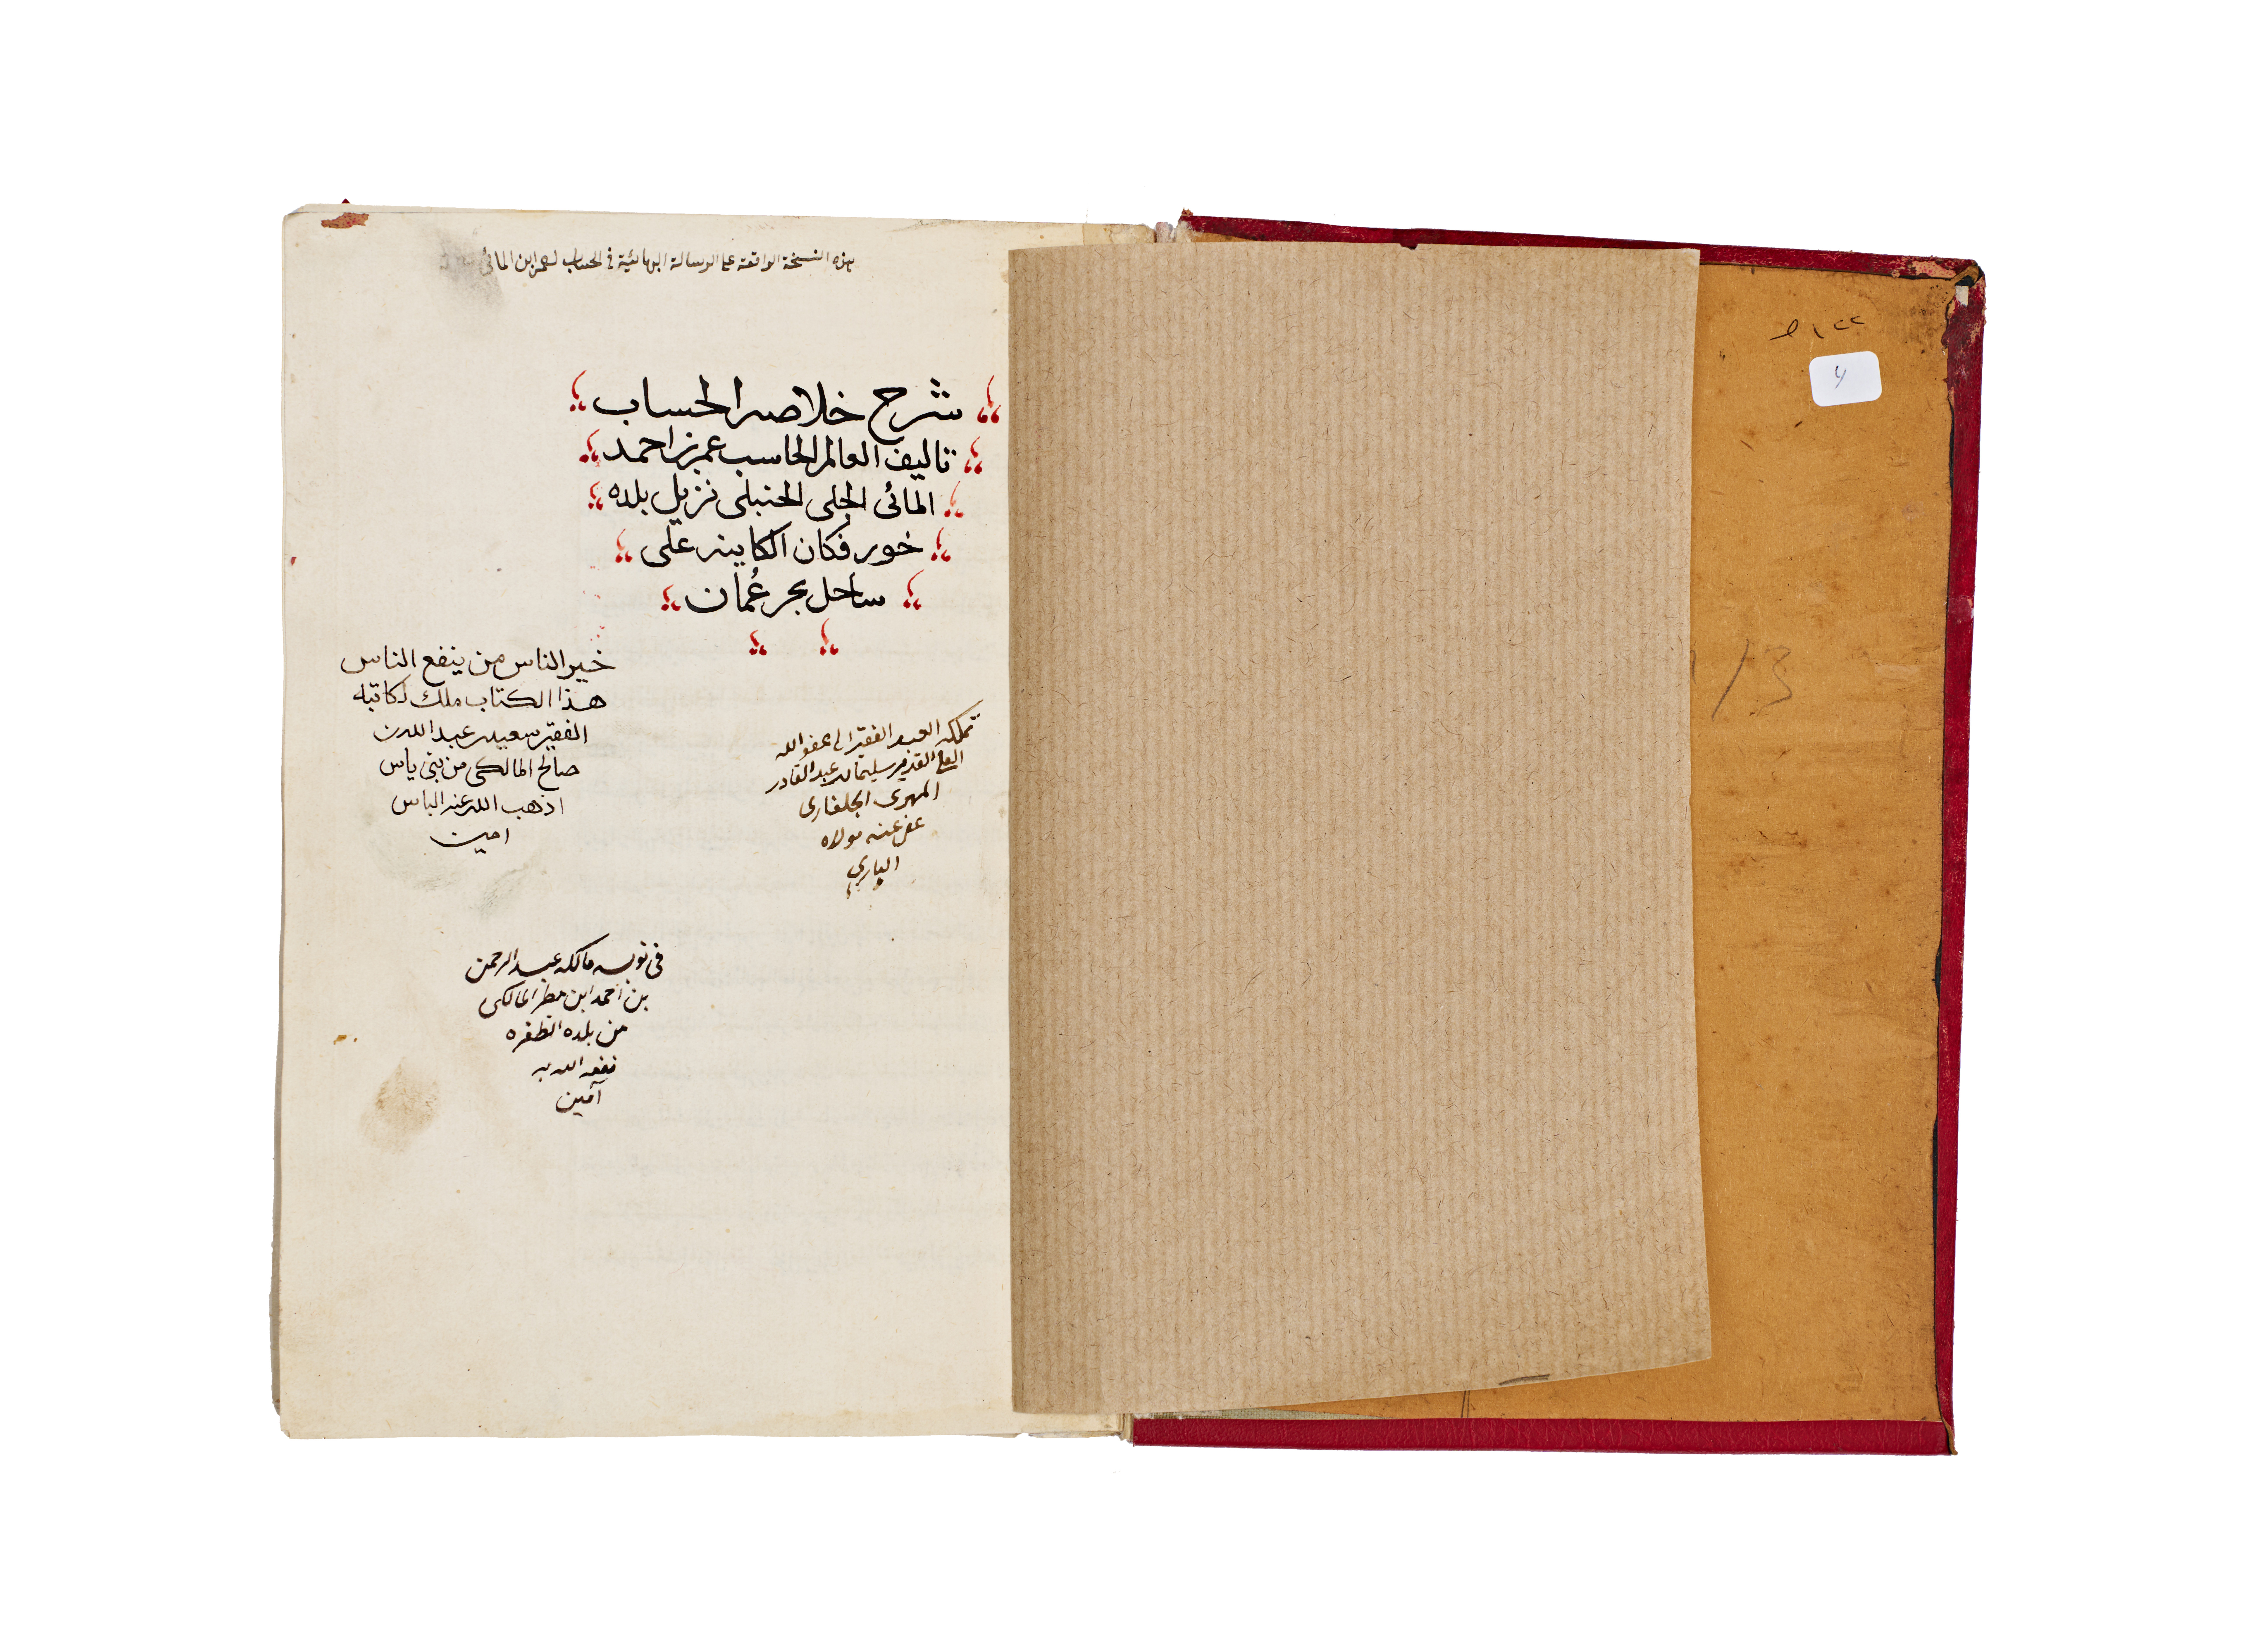 هذه النسخة الواقعة على الرسالة البهائية في الحساب لعمر ابن المائي
شرح خلاصه الحساب
تاليف العالم الحاسب عمر بن احمد
المائى الجلى الحنبلى نزيل بلده
خور فكان الكاينه على
ساحل بحر عُمان
خير الناس من ينفع الناس
هذا الكتاب ملك لكاتبه
الفقير سعيد بن عبد الله بن
صالح المالكى من بنى ياس
اذهب الله عنه الباس
امين
تملكه العبد الفقير الى عفو الله
العلي القدير سليمان بن عبد القادر
المهرى الجلفارى
عفى عنه مولاه
الباري
فى نوبه مالكه عبد الرحمن
بن احمد ابن مطر المالكى
من بلده الظفره
نفعه الله به
آمين
4
1/3